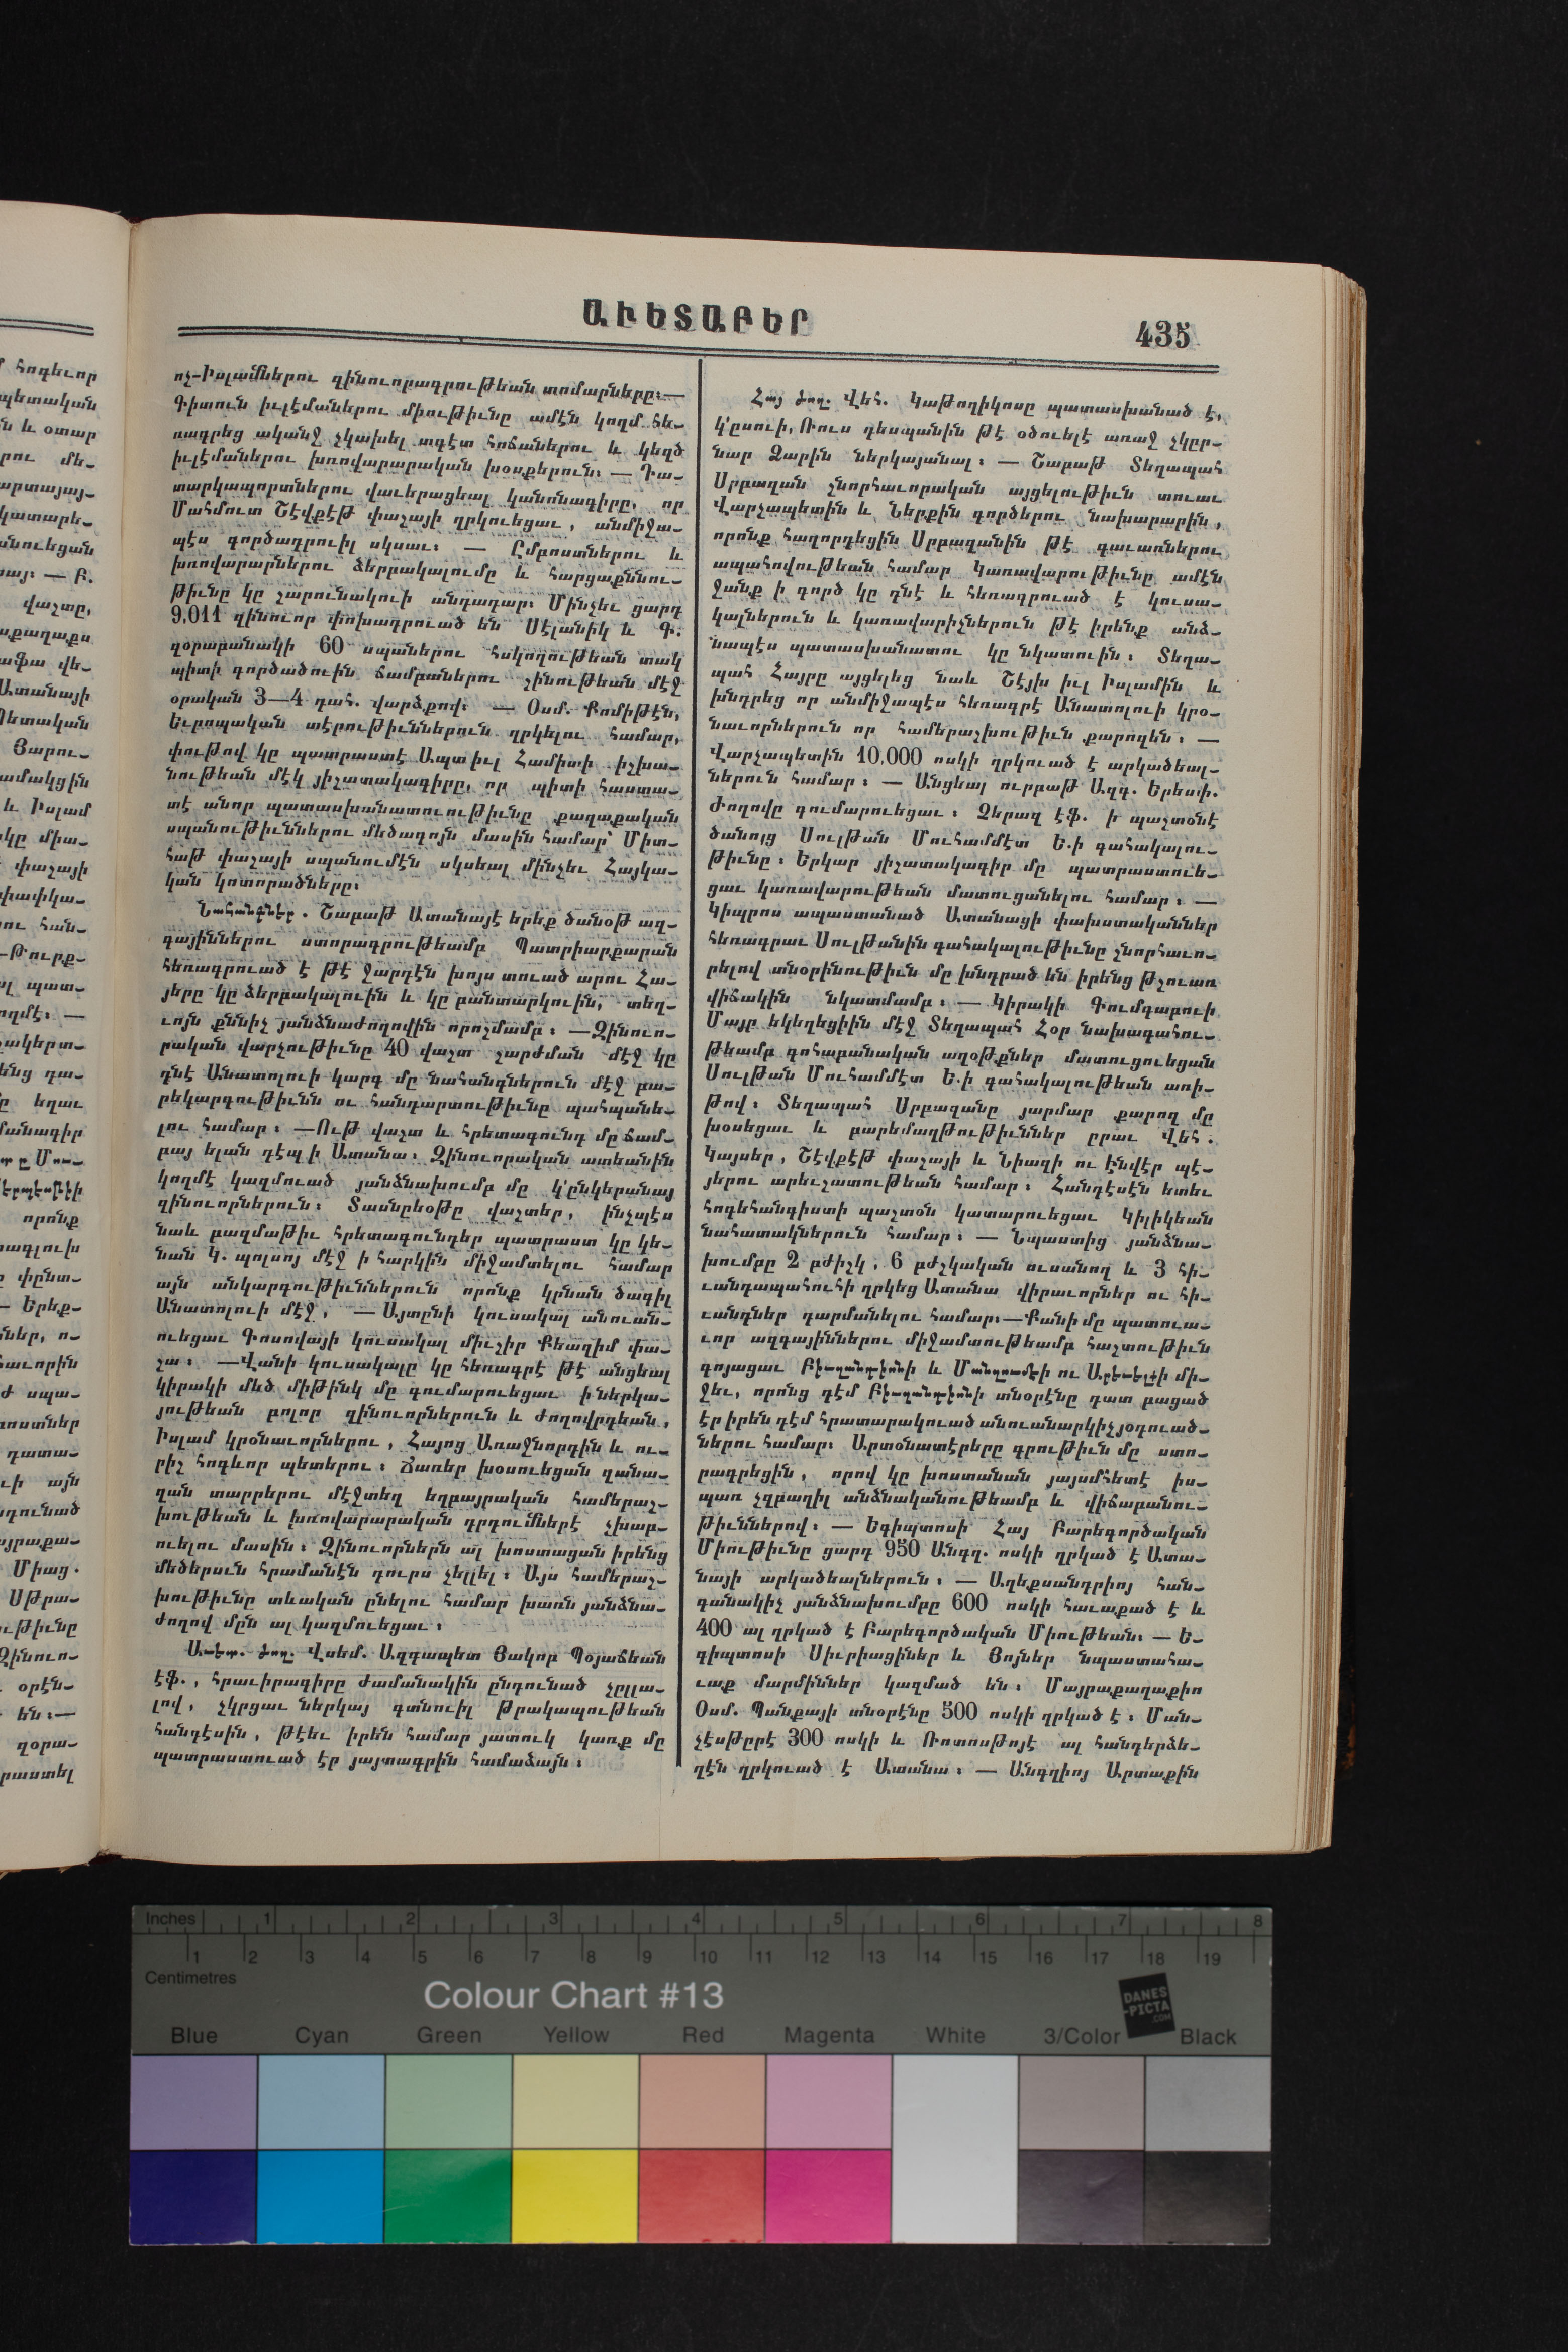 ԱՒԵՏԱԲԵՐ
435
ոչ-Իսլամներու զինուորագրութեան տոմարները։—
Գիտուն իւլէմաներու միութիւնը ամէն կողմ հե-
ռագրեց ականջ չկախել տգէտ հոճաներու և կեղծ
իւլէմաներու խռովարարական խօսքերուն։ — Դա-
տարկապորտներու վաւերացեալ կանոնագիրը, որ
Մահմուտ Շէվքէթ փաշայի ղրկուեցաւ, անմիջա-
պէս գործադրուիլ սկսաւ։ — Ըմբոստներու և
խռովարարներու ձերբակալումը և հարցաքննու-
թիւնը կը շարունակուի անդադար։ Մինչեւ ցարդ
9,011 զինուոր փոխադրուած են Սէլանիկ և Գ.
զօրաբանակի 60 սպաներու հսկողութեան տակ
պիտի գործածուին ճամբաներու շինութեան մէջ
օրական 3—4 դահ. վարձքով։ — Օսմ. Քոմիթէն,
Եւրոպական տէրութիւններուն ղրկելու համար,
փութով կը պատրաստէ Ապտ իւլ Համիտի իշխա-
նութեան մէկ յիշատակագիրը, որ պիտի հաստա-
տէ անոր պատասխանատուութիւնը քաղաքական
սպանութիւններու մեծագոյն մասին համար՝ Միտ-
հաթ փաշայի սպանումէն սկսեալ մինչեւ Հայկա-
կան կոտորածները։
Նահանգներ. Շաբաթ Ատանայէ երեք ծանօթ ազ-
գայիններու ստորագրութեամբ Պատրիարքարան
հեռագրուած է թէ ջարդէն խոյս տուած արու Հա-
յերը կը ձերբակալուին և կը բանտարկուին, տեղ-
ւոյն քննիչ յանձնաժողովին որոշմամբ։ —Զինուո-
րական վարչութիւնը 40 վաշտ շարժման մէջ կը
դնէ Անատոլուի կարգ մը նահանգներուն մէջ բա-
րեկարգութիւնն ու հանդարտութիւնը պահպանե-
լու համար։ —Ութ վաշտ և հրետագունդ մը ճամ-
բայ ելան դէպ ի Ատանա։ Զինուորական ատեանին
կողմէ կազմուած յանձնախումբ մը կ՚ընկերանայ
զինուորներուն։ Տասնըեօթը վաշտեր, ինչպէս
նաև բազմաթիւ հրետագունդեր պատրաստ կը կե-
նան Կ. պոլսոյ մէջ ի հարկին միջամտելու համար
այն անկարգութիւններուն որոնք կրնան ծագիլ
Անատոլուի մէջ, — Այտընի կուսակալ անուան-
ուեցաւ Գոսովայի կուսակալ միւշիր Քեազիմ փա-
շա։ —Վանի կուսակալը կը հեռագրէ թէ անցեալ
կիրակի մեծ միթինկ մը գումարուեցաւ ի ներկա-
յութեան բոլոր զինուորներուն և ժողովրդեան,
Իսլամ կրօնաւորներու, Հայոց Առաջնորդին և ու-
րիշ հոգևոր պետերու։ Ճառեր խօսուեցան զանա-
զան տարրերու մէջտեղ եղբայրական համերաշ-
խութեան և խռովարարական դրդումներէ չխաբ-
ուելու մասին։ Զինուորներն ալ խոստացան իրենց
մեծերսւն հրամանէն դուրս չելլել։ Այս համերաշ-
խութիւնը տևական ընելու համար խառն յանձնա-
ժողով մըն ալ կազմուեցաւ։
Աւետ. ժող. Վսեմ. Ազգապետ Յակոբ Պօյաճեան
էֆ., հրաւիրագիրը ժամանակին ընդունած չըլլա-
լով, չկրցաւ ներկայ գտնուիլ Թրակապութեան
հանդէսին, թէեւ իրեն համար յատուկ կառք մը
պատրաստուած էր յայտագրին համաձայն։
Հայ ժող. Վեհ. Կաթողիկոսը պատասխանած է,
կ՚ըսուի, Ռուս դեսպանին թէ օծուելէ առաջ չկըր-
նար Չարին ներկայանալ։ — Շաբաթ Տեղապահ
Սրբազան շնորհաւորական այցելութիւն տուաւ
Վարչապետին և Ներքին գործերու նախարարին,
որոնք հաղորդեցին Սրբազանին թէ գաւառներու
ապահովութեան համար Կառավարութիւնը ամէն
ջանք ի գործ կը դնէ և հեռագրուած է կուսա-
կալներուն և կառավարիչներուն թէ իրենք անձ-
նապէս պատասխանատու կը նկատուին։ Տեղա-
պահ Հայրը այցելեց նաև Շէյխ իւլ Իսլամին և
խնդրեց որ անմիջապէս հեռագրէ Անատոլուի կրօ-
նաւորներուն որ համերաշխութիւն քարոզեն։ —
Վարչապետին 10,000 ոսկի ղրկուած է արկածեալ-
ներուն համար։ — Անցեալ ուրբաթ Ազգ. Երեսփ.
Ժողովը գումարուեցաւ։ Չերազ էֆ. ի պաշտօնէ
ծանոյց Սուլթան Մուհամմէտ Ե.ի գահակալու-
թիւնը։ Երկար յիշատակագիր մը պատրաստուե-
ցաւ կառավարութեան մատուցանելու համար։ —
Կիպրոս ապաստանած Ատանացի փախստականներ
հեռագրաւ Սուլթանին գահակալութիւնը շնորհաւո-
րելով տնօրինութիւն մը խնդրած են իրենց թշուառ
վիճակին նկատմամբ։ — Կիրակի Գումգաբուի
Մայր եկեղեցիին մէջ Տեղապահ Հօր նախագահու-
թեամբ գոհաբանական աղօթքներ մատուցուեցան
Սուլթան Մուհամմէտ Ե.ի գահակալութեան առի-
թով։ Տեղապահ Սրբազանը յարմար քարոզ մը
խօսեցաւ և բարեմաղթութիւններ ըրաւ Վեհ.
Կայսեր, Շէվքէթ փաշայի և Նիազի ու Էնվէր պէ-
յերու արեւշատութեան համար։ Հանդէսէն ետեւ
հոգեհանգիստի պաշտօն կատարուեցաւ Կիլիկեան
նահատակներուն համար։ — Նպաստից յանձնա-
խումբը 2 բժիշկ, 6 բժշկական ուսանող և 3 հի-
ւանդապահուհի ղրկեց Ատանա վիրաւորներ ու հի-
ւանդներ դարմանելու համար։—Քանի մը պատուա-
ւոր ազգայիններու միջամտութեամբ հաշտութիւն
գոյացաւ Բիւզանդիոնի և Մանզումէի ու Արեւելքի մի-
ջեւ, որոնց դէմ Բիւզանդիոնի տնօրէնը դատ բացած
էր իրեն դէմ հրատարակուած անուանարկիչ յօդուած-
ներու համար։ Արտօնատէրերը գրութիւն մը ստո-
րագրեցին, որով կը խոստանան յայսմհետէ իս-
պառ չզբաղիլ անձնականութեամբ և վիճաբանու-
թիւններով։ — Եգիպտոսի Հայ Բարեգործական
Միութիւնը ցարդ 950 Անգղ. ոսկի ղրկած է Ատա-
նայի արկածեալներուն։ — Աղեքսանդրիոյ հան-
գանակիչ յանձնախումբը 600 ոսկի հաւաքած է և
400 ալ ղրկած է Բարեգործական Միութեան։ — Ե-
գիպտոսի Սիւրիացիներ և Յոյներ նպաստահա-
ւաք մարմիններ կազմած են։ Մայրաքաղաքիս
Օսմ. Պանքայի տնօրէնը 500 ոսկի ղրկած է։ Ման-
չէսթըրէ 300 ոսկի և Ռոտոսթոյէ ալ հանդերձե-
ղէն ղրկուած է Ատանա։ — Անգղիոյ Արտաքին
Inches 1 2 3 4 5 6 7 8
1 2 3 4 5 6 7 8 9 10 11 12 13 14 15 16 17 18 19
Centimetres
Colour Chart #13
DANES
-PICTA
.COM
Blue Cyan Green Yellow Red Magenta White 3/Color Black